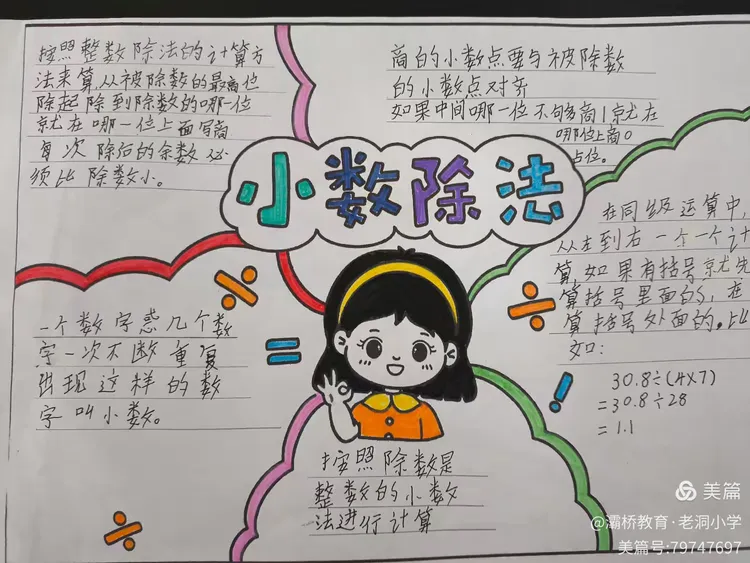 按照整数除法的计算方
法来算,从被除数的最高位
除起除到除数的哪一位
就在哪一位上面写商
每次除后的余数必
须比除数小。
商的小数点要与被除数
的小数点对齐
如果中间哪一位不够商1就在
哪位上商0
占位。
小数除法
在同级运算中,
从左到右一个一个计
算,如果有括号就先
算括号里面的,在
算括号外面的。比
如:
30.8÷(4×7)
=30.8÷28
=1.1
一个数字或几个数
字一次不断重复
出现这样的数
字叫小数。
按照除数是
整数的小数
法进行计算
美篇
@灞桥教育·老洞小学
美篇号:79747697